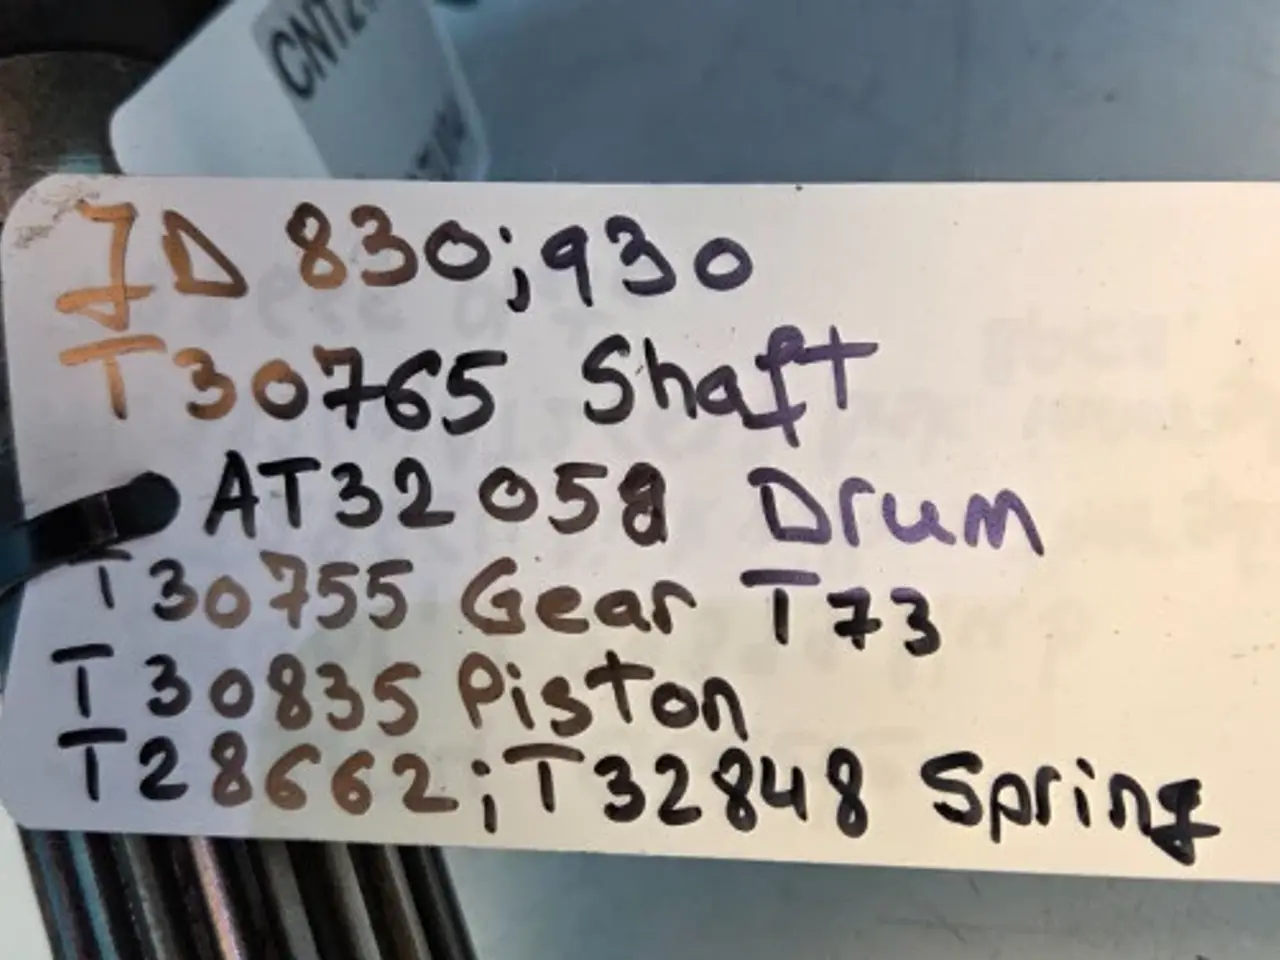 CNT2
JD 830;930
T30765 Shaft
AT32058 Drum
T30755 Gear T73
T30835 Piston
T28662;T32848 Spring